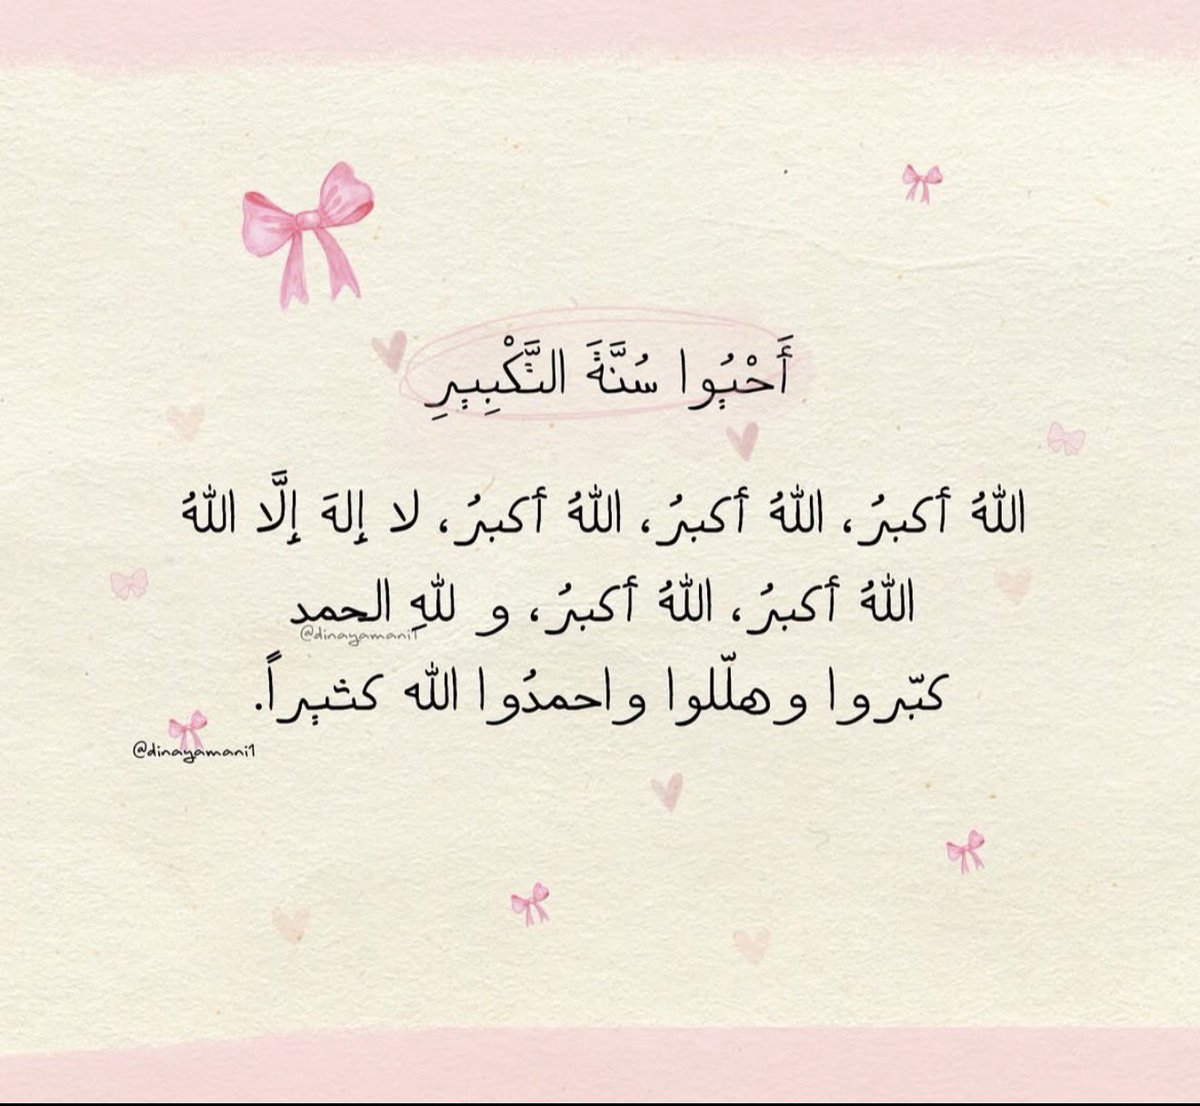 أَحْيُوا سُنَّةَ التَّكْبِيرِ
اللهُ أكبرُ، اللهُ أكبرُ، اللهُ أكبرُ، لا إلهَ إلَّا اللهُ
اللهُ أكبرُ، اللهُ أكبرُ، و للهِ الحمد
@dinayamani1
كبّروا وهلّلوا واحمدُوا الله كثيراً.
@dinayamani1